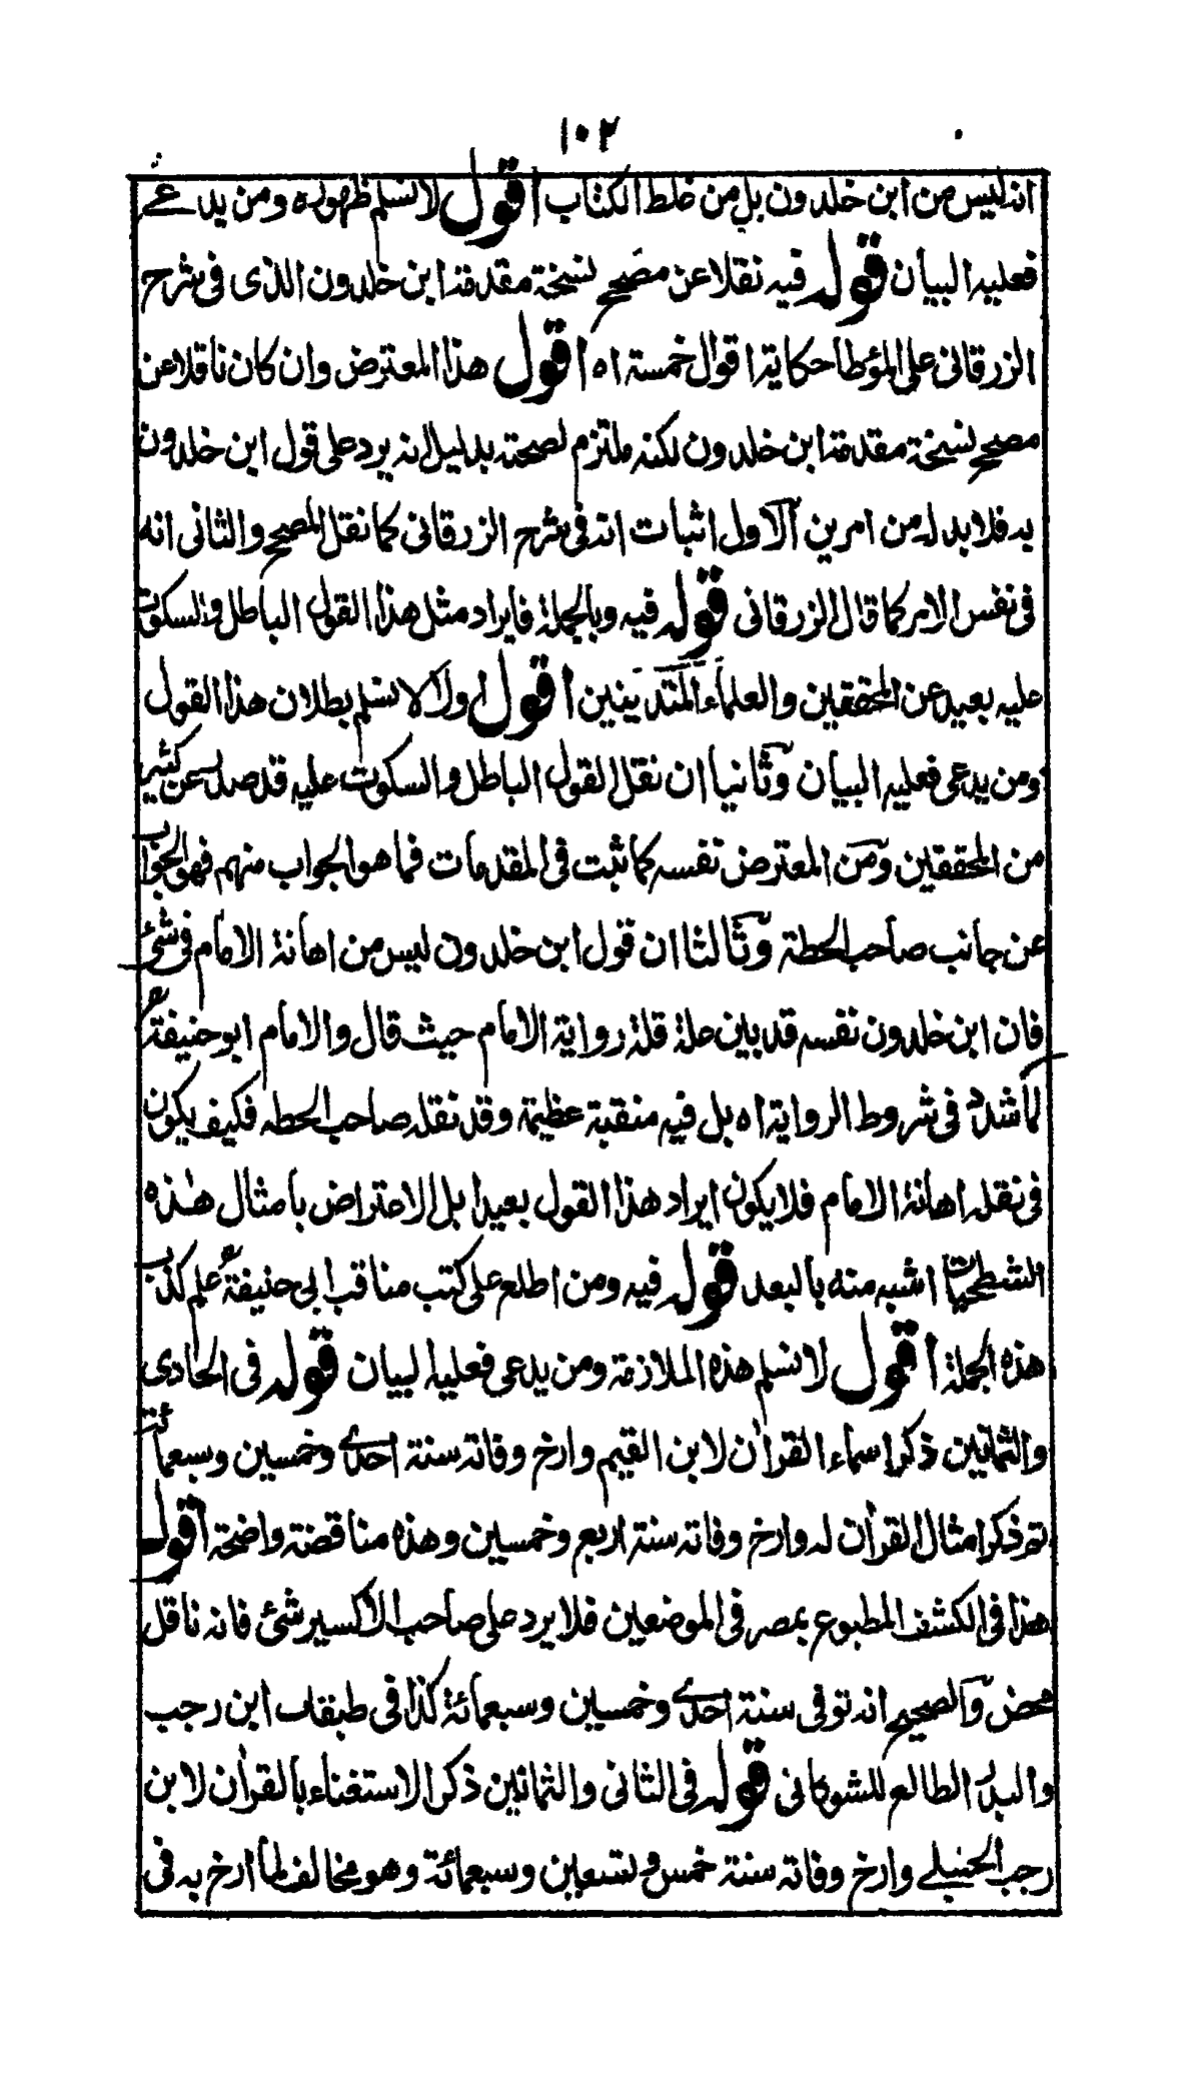 ١٠٢
انه ليس من ابن خلدون بل من غلط الكتاب اقول لا نسلم ظهوره ومن يدعى
فعليه البيان قوله فيه نقلا عن مصحح نسخة مقدمة ابن خلدون الذى فى شرح
الزرقانى على المؤطا حكاية اقوال خمسة اه اقول هذا المعترض وان كان ناقلا عن
مصحح نسخة مقدمة ابن خلدون لكنه ملتزم لصحته بدليل انه يرد على قول ابن خلدون
به فلا بد له من امرين الاول اثبات انه فى شرح الزرقانى كما نقل المصحح والثانى انه
فى نفس الامر كما قال الزرقانى قوله فيه وبالجملة فايراد مثل هذا القول الباطل والسكوت
عليه بعيد عن المحققين والعلماء المتدينين اقول اولا لا نسلم بطلان هذا القول
ومن يدعى فعليه البيان وثانيا ان نقل القول الباطل والسكوت عليه قد صدر عن كثير
من المحققين ومن المعترض نفسه كما ثبت فى المقدمات فما هو الجواب منهم فهو الجواب
عن جانب صاحب الحطة وثالثا ان قول ابن خلدون ليس من اهانة الامام فى شئ
فان ابن خلدون نفسه قد بين علة قلة رواية الامام حيث قال والامام ابو حنيفة رح
لما شدد فى شروط الرواية اه بل فيه منقبة عظيمة وقد نقله صاحب الحطه فكيف يكون
فى نقله اهانة الامام فلا يكون ايراد هذا القول بعيدا بل الاعتراض بامثال هذه
الشطحيات اشبه منه بالبعد قوله فيه ومن اطلع على كتب مناقب ابى حنيفة رح علم كذب
هذه الجملة اقول لا نسلم هذه الملازمة ومن يدعى فعليه البيان قوله فى الحادى
والثمانين ذكر اسماء القراٰن لابن القيم وارخ وفاته سنة احدى وخمسين وسبعمائة
ثم ذكر امثال القراٰن له وارخ وفاته سنة اربع وخمسين وهذه مناقضة واضحة اقول
هذا فى الكشف المطبوع بمصر فى الموضعين فلا يرد على صاحب الاكسير شئ فانه ناقل
محض والصحيح انه توفى سنة احدى وخمسين وسبعمائة كذا فى طبقات ابن رجب
والبدر الطالع للشوكانى قوله فى الثانى والثمانين ذكر الاستغناء بالقراٰن لابن
رجب الحنبلے وارخ وفاته سنة خمس وتسعين وسبعمائة وهو مخالف لما ارخ به فى